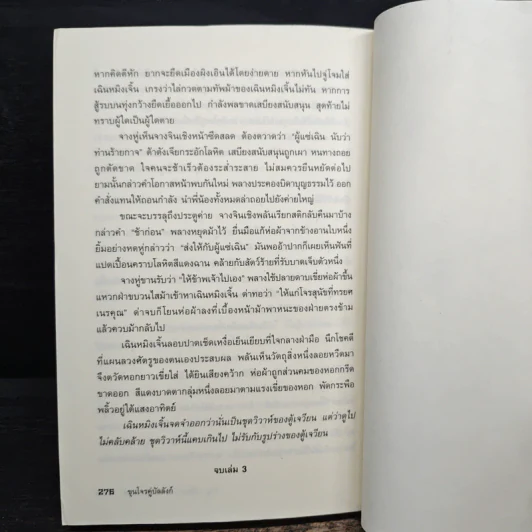 หากคิดตีหัก ยากจะยึดเมืองผิงเอินได้โดยง่ายดาย หากหันไปจู่โจมใส่
เฉินหมิงเจิ้น เกรงว่าไล่กวดตามทัพม้าของเฉินหมิงเจิ้นไม่ทัน หากการ
สู้รบบนทุ่งกว้างยืดเยื้อออกไป กำลังพลขาดเสบียงสนับสนุน สุดท้ายไม่
ทราบผู้ใดเป็นผู้ใดตาย
จางหู่เห็นจางจินเชิงหน้าซีดสลด ต้องตวาดว่า "ผู้แซ่เฉิน นับว่า
ท่านร้ายกาจ" ตัวดังเจียกระอักโลหิต เสบียงสนับสนุนถูกเผา หนทางถอย
ถูกตัดขาด ใจคนจะช้าเร็วต้องระส่ำระสาย ไม่สมควรยืนหยัดต่อไป
ยามนั้นกล่าวคำโอภาสหน้าพบกันใหม่ พลางประคองบิดาบุญธรรมไว้ ออก
คำสั่งแทนให้ถอนกำลัง นำพี่น้องทั้งหมดล่าถอยไปยังค่ายใหญ่
ขณะจะบรรลุถึงประตูค่าย จางจินเชิงพลันเรียกสติกลับคืนมาบ้าง
กล่าวคำ "ช้าก่อน" พลางหยุดม้าไว้ ยื่นมือแก้ห่อผ้าจากข้างอานใบหนึ่ง
ยิ้มอย่างหดหู่กล่าวว่า "ส่งให้กับผู้แซ่เฉิน" มันพออ้าปากก็เผยเห็นฟันที่
แปดเปื้อนคราบโลหิตสีแดงฉาน คล้ายกับสัตว์ร้ายที่รับบาดเจ็บตัวหนึ่ง
จางหู่ขานรับว่า "ให้ข้าพเจ้าไปเอง" พลางใช้ปลายดาบเขี่ยห่อผ้าขึ้น
แหวกฝ่าขบวนไสม้าเข้าหาเฉินหมิงเจิ้น ด่าทอว่า "ให้แก่โจรสุนัขที่ทรยศ
เนรคุณ" ด่าจบก็โยนห่อผ้าลงที่เบื้องหน้าม้าพาหนะของฝ่ายตรงข้าม
แล้วควบม้ากลับไป
เฉินหมิงเจิ้นลอบปาดเช็ดเหงื่อเย็นเยียบที่ใจกลางฝ่ามือ นึกโชคดี
ที่แผนลวงศัตรูของตนเองประสบผล พลันเห็นวัตถุสิ่งหนึ่งลอยหวีดมา
จึงตวัดหอกยาวเขี่ยใส่ ได้ยินเสียงคว้าก ห่อผ้าถูกส่วนคมของหอกกรีด
ขาดออก สีแดงบาดตากลุ่มหนึ่งลอยมาตามแรงเขี่ยของหอก พัดกระพือ
พลิ้วอยู่ใต้แสงอาทิตย์
เฉินหมิงเจิ้นจดจำออกว่านั่นเป็นชุดวิวาห์ของตู้เจวียน แต่ว่าดูไป
ไม่คลับคล้าย ชุดวิวาห์นี้แคบเกินไป ไม่รับกับรูปร่างของตู้เจวียน
จบเล่ม 3
276 ขุนโจรคู่บัลลังก์